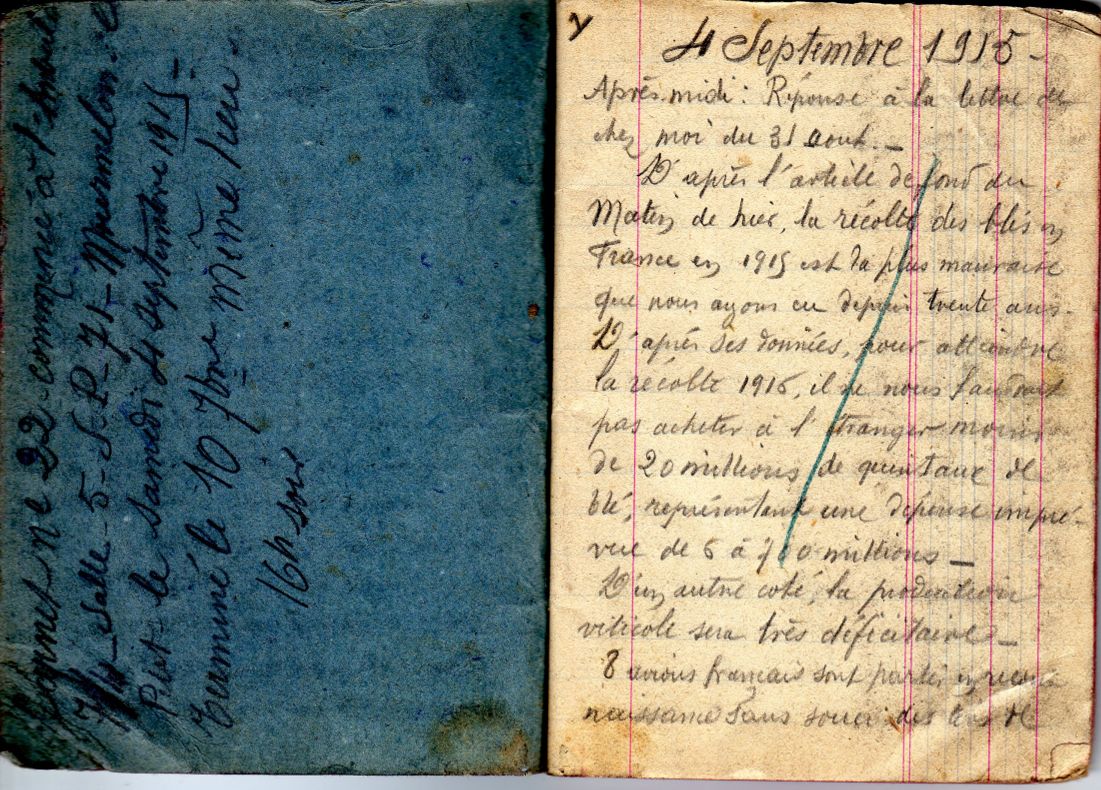 Carnet n° 22 commencé à l'
7/4 - Salle - 5 - S.P. 71 - Mourmelon-le
Petit le samedi 4 septembre 1915 -
Terminé le 10 7bre même lieu -
16h soir
4 Septembre 1915 -
Après-midi : Réponse à la lettre de
chez moi du 31 aout. -
D'après l'article de fond du
Matin de hier, la récolte des blés en
France en 1915 est la plus mauvaise
que nous ayons eu depuis trente ans.
D'après ses données, pour atteindre
la récolte 1916, il ne nous faudrait
pas acheter à l'étranger moins
de 20 millions de quintaux de
blé, représentant une dépense impré-
vue de 6 à 700 millions -
D'un autre coté, la production
viticole sera très déficitaire -
8 avions français sont partis en recon
naissance sans souci des tirs de